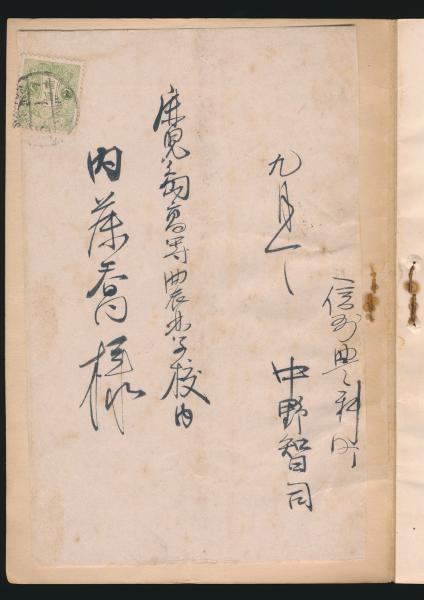 信州豊科町
中野智司
九月一
鹿児島高等農林学校内
内藤喬様